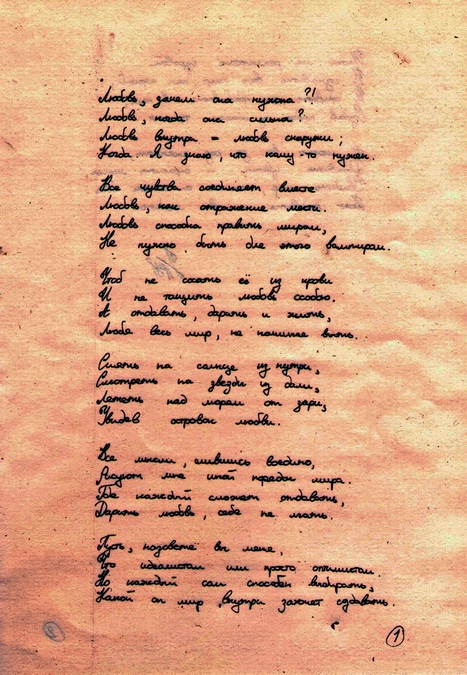 Любовь, зачем она нужна?!
Любовь, когда она сильна?
Любовь внутри = любовь снаружи;
Когда Я знаю, что кому-то нужен.
Все чувства соединяет вместе
Любовь, как отражение мести.
Любовь способна править миром,
Не нужно быть для этого вампиром.
Чтоб не сосать её из крови
И не тащить любовь собою,
А отдавать, дарить и жить,
Любя весь мир, не начиная
Сиять на солнце изнутри,
Смотреть на звезды из дали,
Лететь над морем от зари,
Увидев островок любви.
Все мысли, слившись воедино,
Рисуют мне иной порядок мира.
Где каждый сможет отдавать,
Дарить любовь, себе не
Пусть, назовёте вы меня,
Что идеалистом или просто оптимистом.
Но каждый сам способен выбирать,
Какой он мир внутри захочет создавать.
1